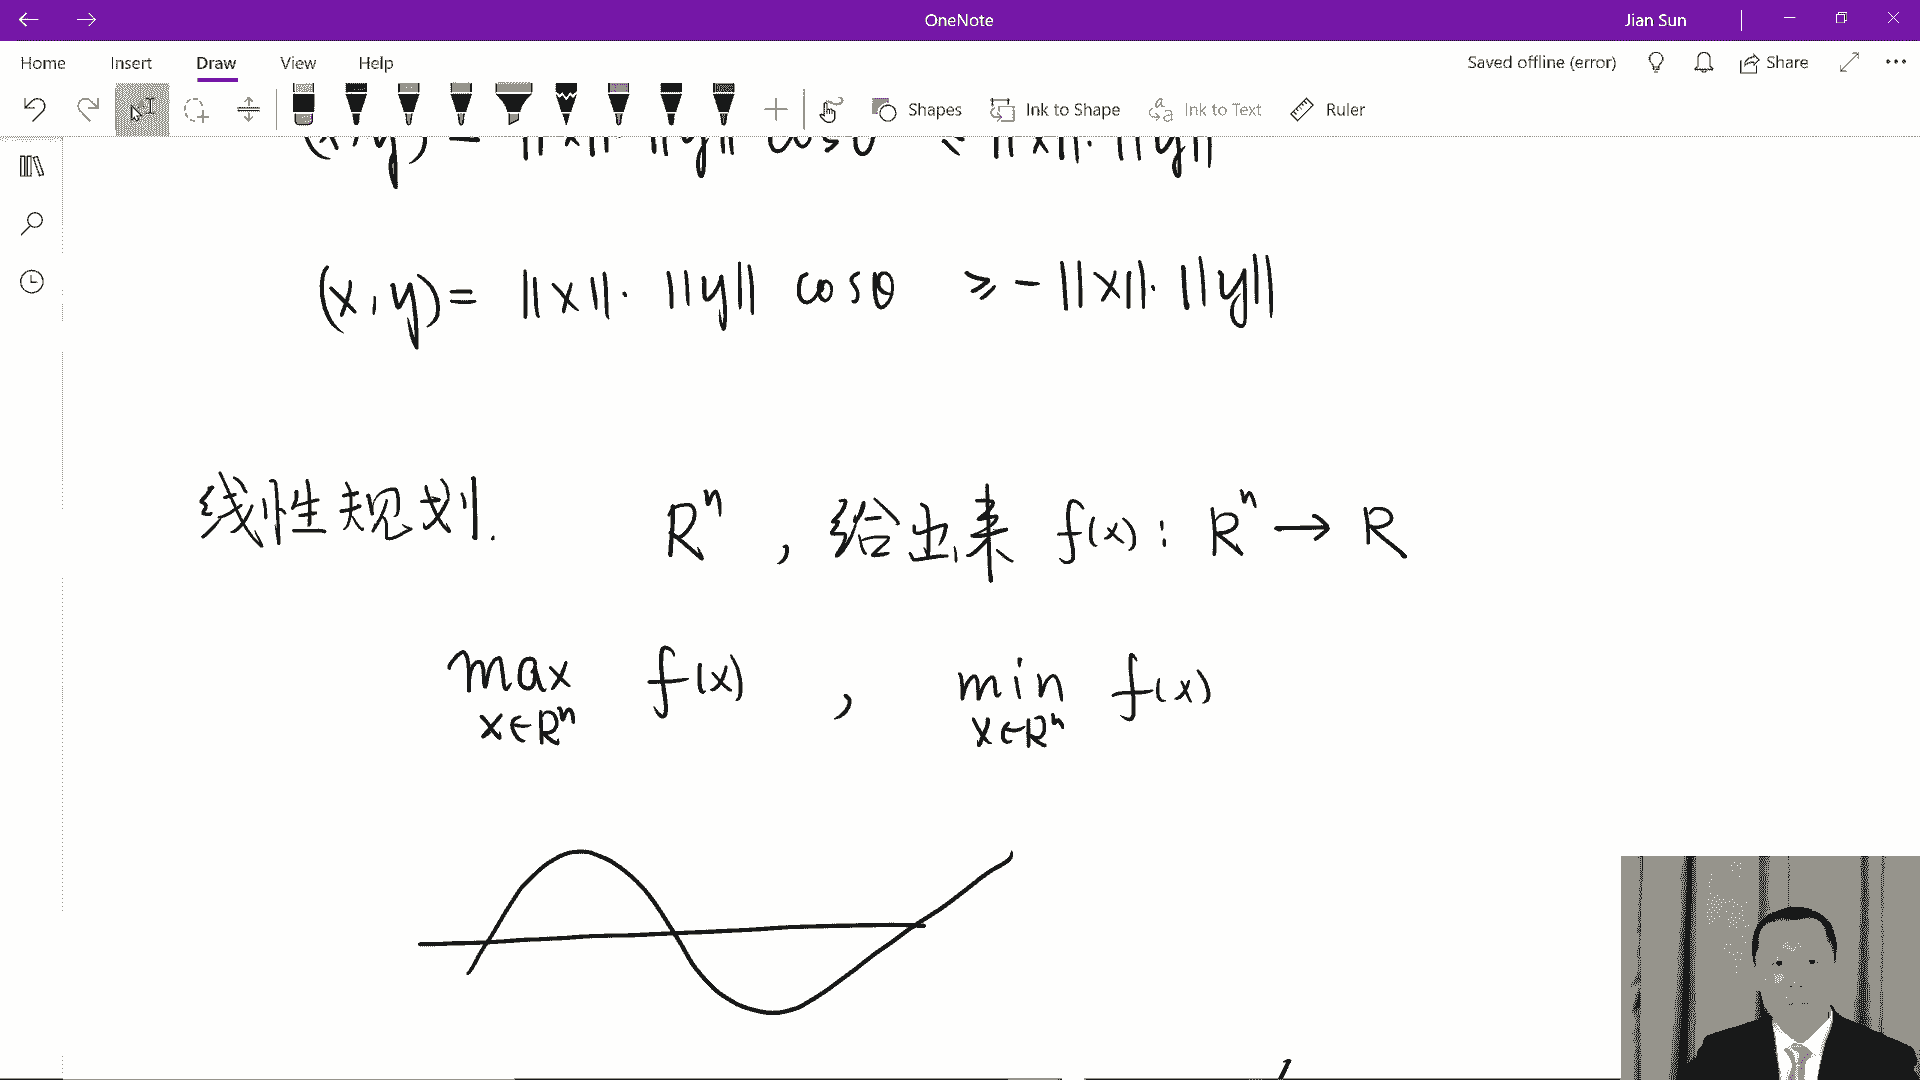 OneNote
Jian Sun
Home Insert Draw View Help
Saved offline (error)
Share
Shapes Ink to Shape Ink to Text Ruler
(x, y) = ||x||· ||y|| cosθ ≤ ||x||· ||y||
(x, y) = ||x||· ||y|| cosθ ≥ -||x||· ||y||
线性规划. Rⁿ , 给出来 f(x) : Rⁿ → R
max f(x) , min f(x)
x∈Rⁿ x∈Rⁿ